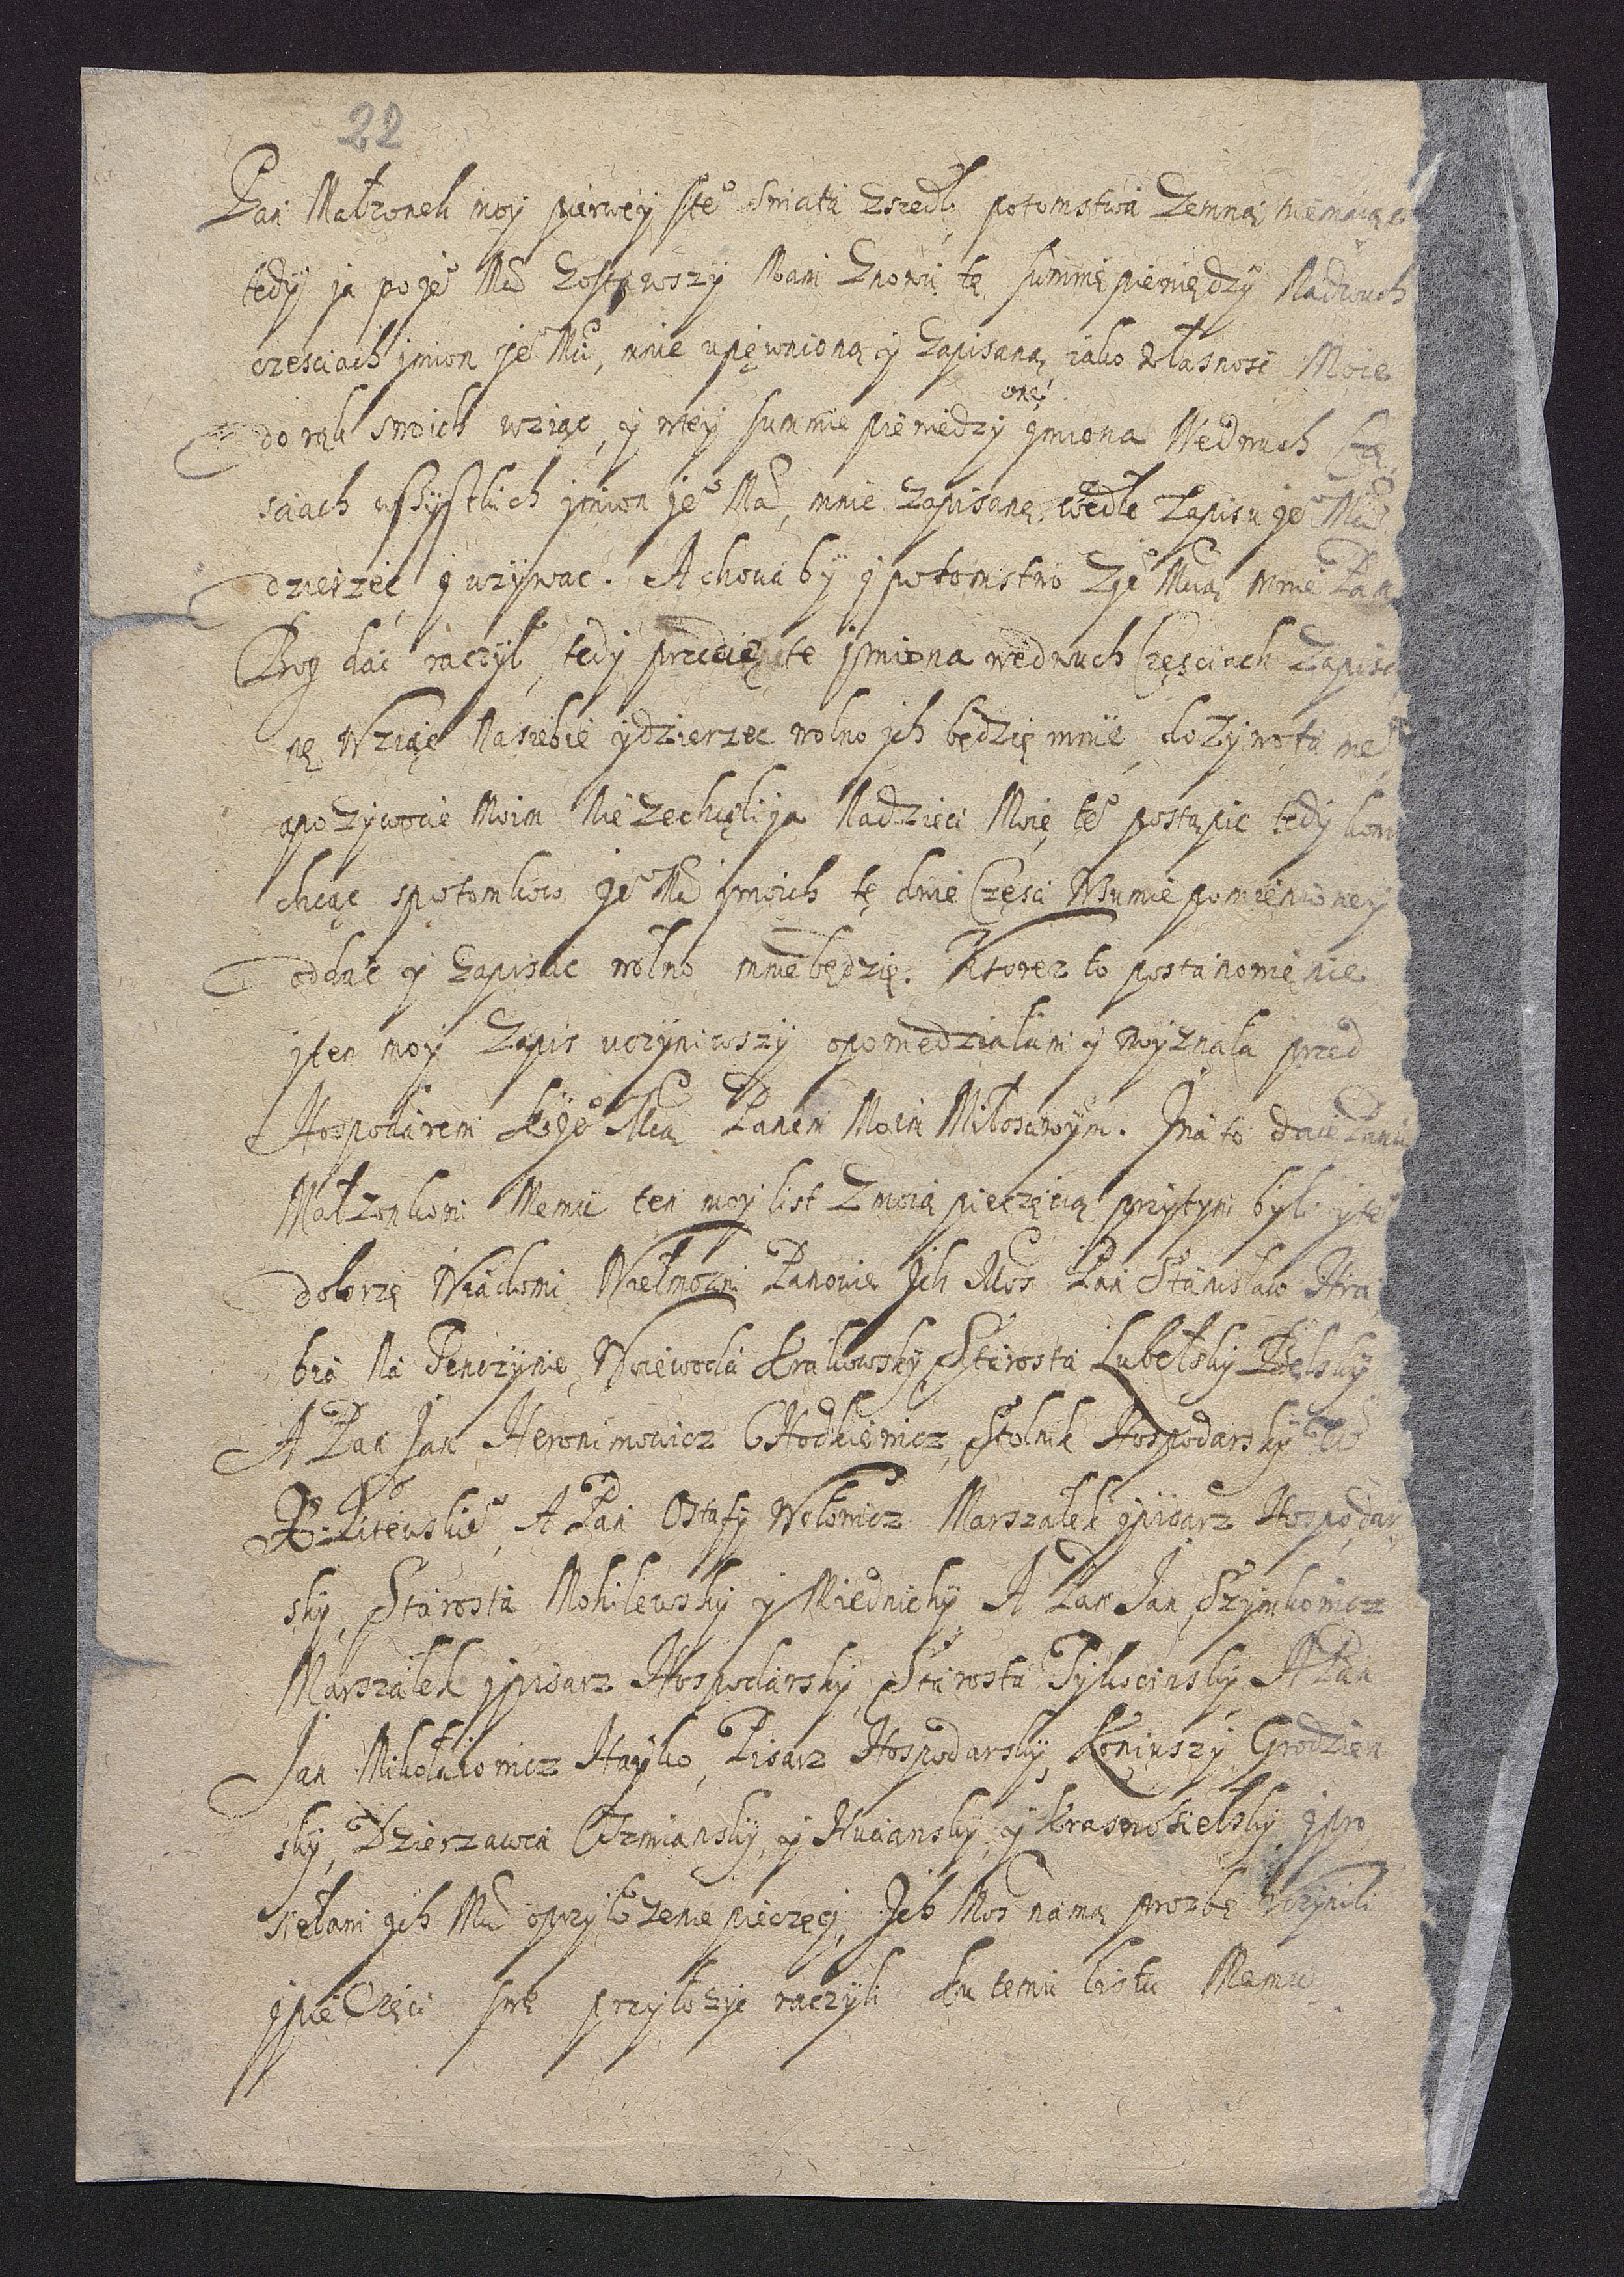 22
Pan Małzonek moy pierwey s te° swiata zszedł, potomstwa zemną niemaiąc
tedy ja po je° Mci zostawszy Mam znowu tę summę pieniędzy Nadwuch
czesciach jmion je° Mci, mnie upewnioną y zapisaną, iako własnosc Moię
do rąk swoich wziąc, y wtey summie pieniedzy onę jmiona Wedwuch Czę
sciach wszystkich jmion je° Mci, mnie zapisanę, wedle zapisu je° Mci
dzierzec y uzywac. A chocia by y potomstwo z je° Mcią mnie Pan
Bog dac raczył, tedy przecię te jmiona wedwuch Częsciach zapisa
nę Wziąc Nasiebie y dzierzec wolno jch będzię mnie, do zywota me°
apozywocie Moim Nie zechcęli ja Nadzieci Moię te° postąpic tedy komu
chcąc s potomkow je° Mci y moich tę dwie Częsci Wsumie pomienioney
oddac y zapisac wolno mnie będzię. Ktorez to postanowienie
j ten moy zapis uczyniwszy opowiedziałam y wyznała przed
Hospodarem Kro je° Mcią Panem Moim Miłosciwym. J na to daię Panu
Małzonkowi Memu ten moy list z moią pieczęcią przytym byli y te°
dobrzę Wiadomi Wielmozni Panowie Jch Mos Pan Stanisław Hra
bia Na Tenczynie, Woiewoda Krakowsky, Starosta Lubelsky Bełsky
A Pan Jan Heronimowicz CHodkiewicz, Stolnik Hospodarsky W°
X° Litewskie°, A Pan Ostafy Wołowicz Marszałek y pisarz Hospodar
sky, Starosta Mohilewsky y Miednicky A Pan Jan Szymkowicz
Marszałek y pisarz Hospodarsky, Starosta Tykocinsky A Pan
Jan Mikołaiowicz Hayko, Pisarz Hospodarsky, Koniuszy Grodzien
sky, Dzierzawca Oszmiansky, y Kuciansky, y Krasnosielsky y pro
siełam ych Mci o przyłozenie pieczęci, Jch Mos namą prozbę Uczynili
y pieCzęci swę przyłozyc raczyli ku temu listu Memu